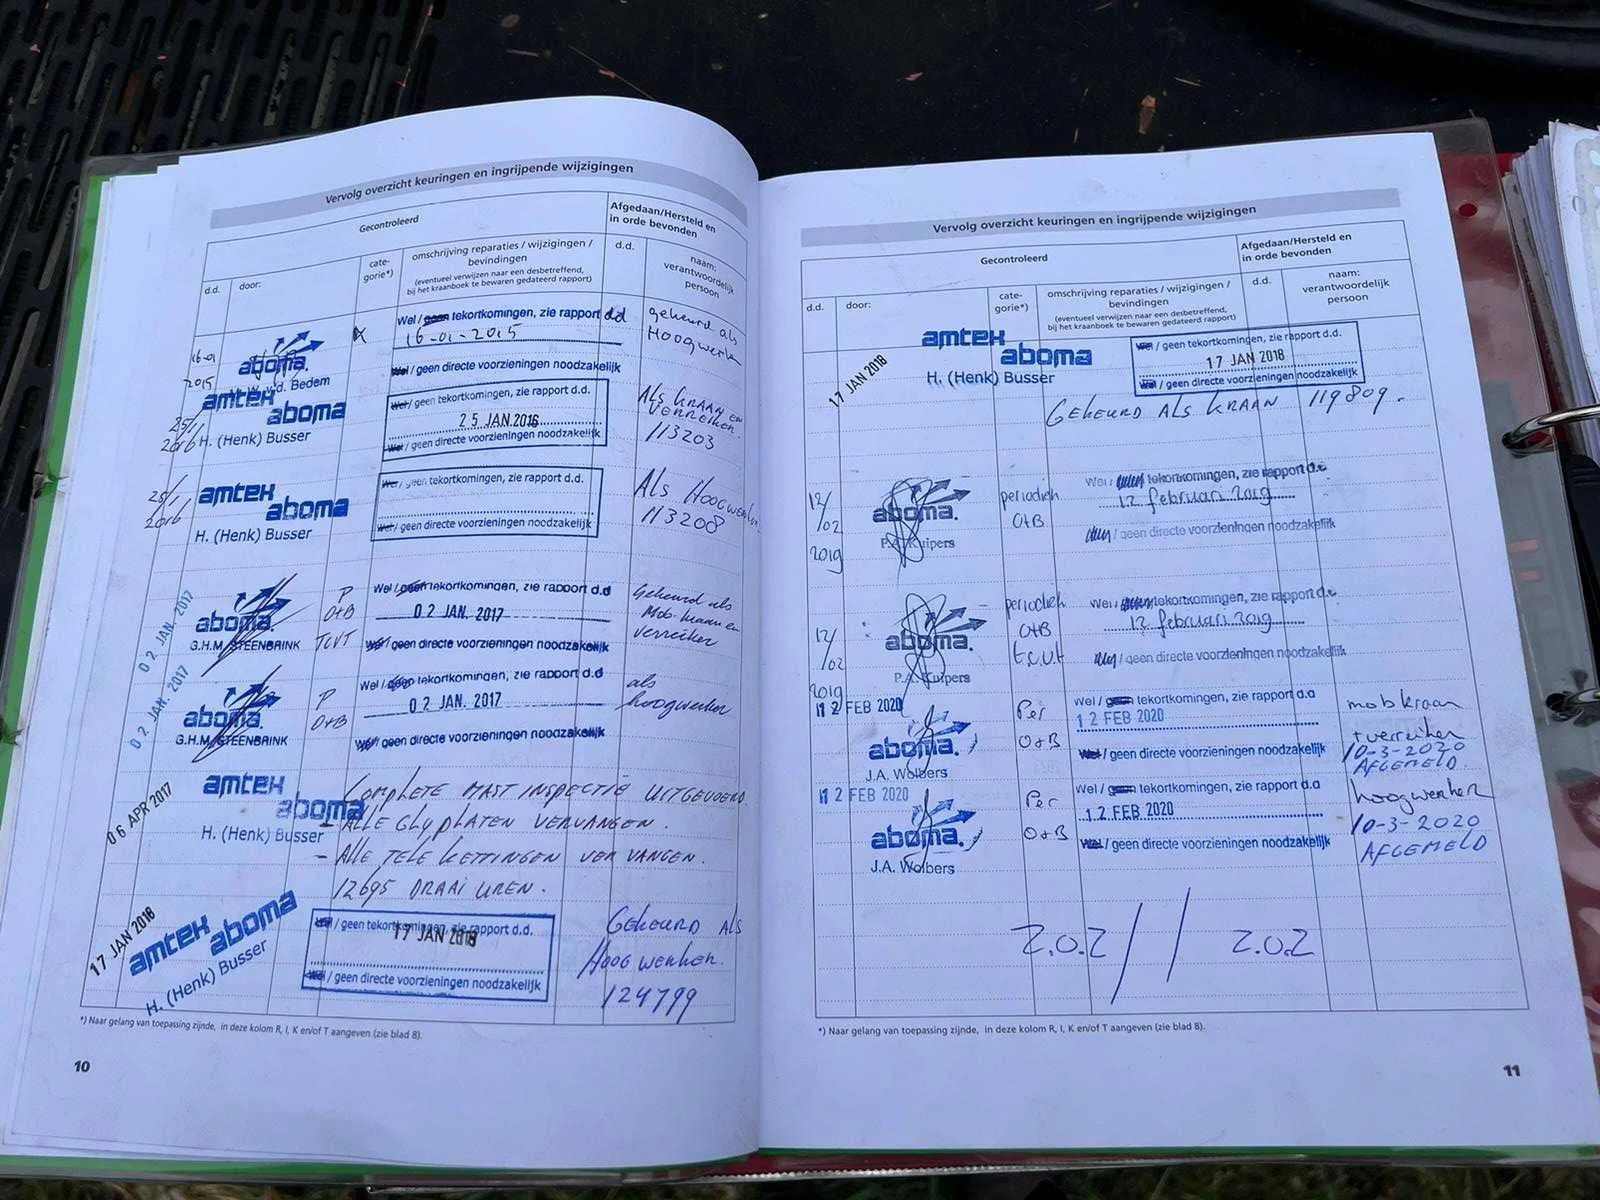 Vervolg overzicht keuringen en ingrijpende wijzigingen
Gecontroleerd
Afgedaan/Hersteld en
in orde bevonden
d.d.
door:
cate-
gorie*)
omschrijving reparaties / wijzigingen /
bevindingen
(eventueel verwijzen naar een desbetreffend,
bij het kraanboek te bewaren gedateerd rapport)
d.d.
naam:
verantwoordelijk
persoon
16-01
2015
aboma.
v.d. Bedem
Wel / geen tekortkomingen, zie rapport d.d
16-01-2015
Wel / geen directe voorzieningen noodzakelijk
gekeurd als
Hoogwerk
25/1
2016
amtek
aboma
H. (Henk) Busser
Wel / geen tekortkomingen, zie rapport d.d.
25 JAN.2016
Wel / geen directe voorzieningen noodzakelijk
Als KRAAN en
VERREIKER.
113203
25/1
2016
amtek
aboma
H. (Henk) Busser
Wel / geen tekortkomingen, zie rapport d.d.
Wel / geen directe voorzieningen noodzakelijk
Als Hoogwerker
113208
02 JAN. 2017
aboma.
G.H.M. STEENBRINK
P
O+B
TCVT
Wel / geen tekortkomingen, zie rapport d.d
02 JAN. 2017
Wel / geen directe voorzieningen noodzakelijk
Gekeurd als
Mob. kraan en
verreiker
02 JAN. 2017
aboma.
G.H.M. STEENBRINK
P
O+B
Wel / geen tekortkomingen, zie rapport d.d
02 JAN. 2017
Wel / geen directe voorzieningen noodzakelijk
als
hoogwerker
06 APR 2017
amtek
aboma
H. (Henk) Busser
COMPLETE MAST INSPECTIE UITGEVOERD
- ALLE GLYPLATEN VERVANGEN.
- ALLE TELE KETTINGEN VERVANGEN.
12695 DRAAI UREN.
17 JAN 2018
amtek
aboma
H. (Henk) Busser
Wel / geen tekortkomingen, zie rapport d.d.
17 JAN 2018
Wel / geen directe voorzieningen noodzakelijk
GEKEURD ALS
Hoogwerker.
124799
*) Naar gelang van toepassing zijnde, in deze kolom R, I, K en/of T aangeven (zie blad 8).
10
Vervolg overzicht keuringen en ingrijpende wijzigingen
Gecontroleerd
Afgedaan/Hersteld en
in orde bevonden
d.d.
door:
cate-
gorie*)
omschrijving reparaties / wijzigingen /
bevindingen
(eventueel verwijzen naar een desbetreffend,
bij het kraanboek te bewaren gedateerd rapport)
d.d.
naam:
verantwoordelijk
persoon
17 JAN 2018
amtek
aboma
H. (Henk) Busser
Wel / geen tekortkomingen, zie rapport d.d.
17 JAN 2018
Wel / geen directe voorzieningen noodzakelijk
GEKEURD ALS KRAAN 119809.
12/
02
2019
aboma.
P.A. Kuipers
periodiek
O+B
Wel / geen tekortkomingen, zie rapport d.d
12 februari 2019
Wel / geen directe voorzieningen noodzakelijk
12/
02
2019
aboma.
P.A. Kuipers
periodiek
O+B
t.c.v.t
Wel / geen tekortkomingen, zie rapport d.d
12 februari 2019
Wel / geen directe voorzieningen noodzakelijk
12 FEB 2020
aboma.
J.A. Wolbers
Per
O+B
Wel / geen tekortkomingen, zie rapport d.d
12 FEB 2020
Wel / geen directe voorzieningen noodzakelijk
mobkraan
+ verreiker
10-3-2020
AFGEMELD.
12 FEB 2020
aboma.
J.A. Wolbers
Per
O+B
Wel / geen tekortkomingen, zie rapport d.d
12 FEB 2020
Wel / geen directe voorzieningen noodzakelijk
hoogwerker
10-3-2020
AFGEMELD
Z.O.Z // Z.O.Z
*) Naar gelang van toepassing zijnde, in deze kolom R, I, K en/of T aangeven (zie blad 8).
11